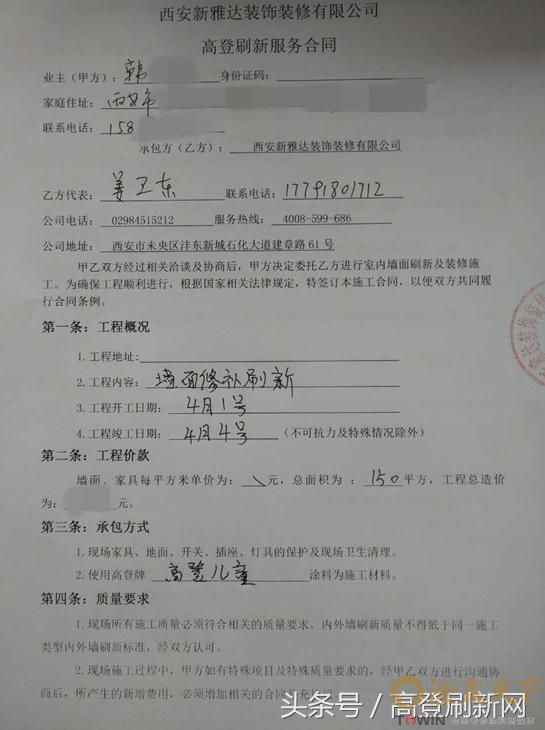 西安新雅达装饰装修有限公司
高登刷新服务合同
业主（甲方）：韩 身份证码：
家庭住址：西安市
联系电话：158
承包方（乙方）：西安新雅达装饰装修有限公司
乙方代表：姜卫东 联系电话：17791801712
公司电话：02984515212 服务热线：4008-599-686
公司地址：西安市未央区沣东新城石化大道建章路61号
甲乙双方经过相关洽谈及协商后，甲方决定委托乙方进行室内墙面刷新及装修施
工。为确保工程顺利进行，根据国家相关法律规定，特签订本施工合同，以便双方共同履
行合同条例。
第一条：工程概况
1.工程地址:
2.工程内容：墙面修补刷新
3.工程开工日期：4月1号
4.工程竣工日期：4月4号 （不可抗力及特殊情况除外）
第二条：工程价款
墙面、家具每平方米单价为：\元，总面积为：150平方，工程总造价
为： 元。
第三条：承包方式
1.现场家具、地面、开关、插座、灯具的保护及现场卫生清理。
2.使用高登牌 高登儿童 涂料为施工材料。
第四条：质量要求
1.现场所有施工质量必须符合相关的质量要求，内外墙刷新质量不得低于同一施工
类型内外墙刷新标准，经双方认可。
2.现场施工过程中，甲方如有特殊项目及特殊质量要求的，经甲乙双方进行沟通协
商后，所产生的新增费用，必须增加相关的合同补充
头条号／高登刷新网
TOWIN